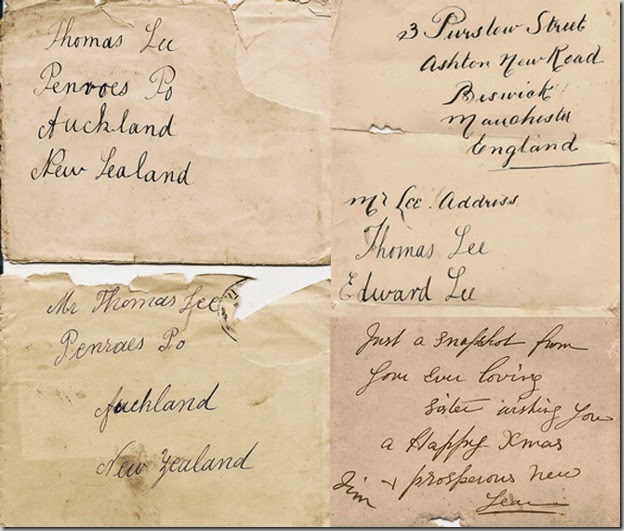 Thomas Lee
Penroes Po
Auckland
New Zealand
Mr Thomas Lee
Penraes Po
Auckland
New Zealand
23 Purslow Street
Ashton New Road
Beswick
Manchester
England
Mr Lee. Address
Thomas Lee
Edward Lee
Just a snapshot from
your ever loving
sister wishing you
a Happy Xmas
& prosperous New
Jim
Year